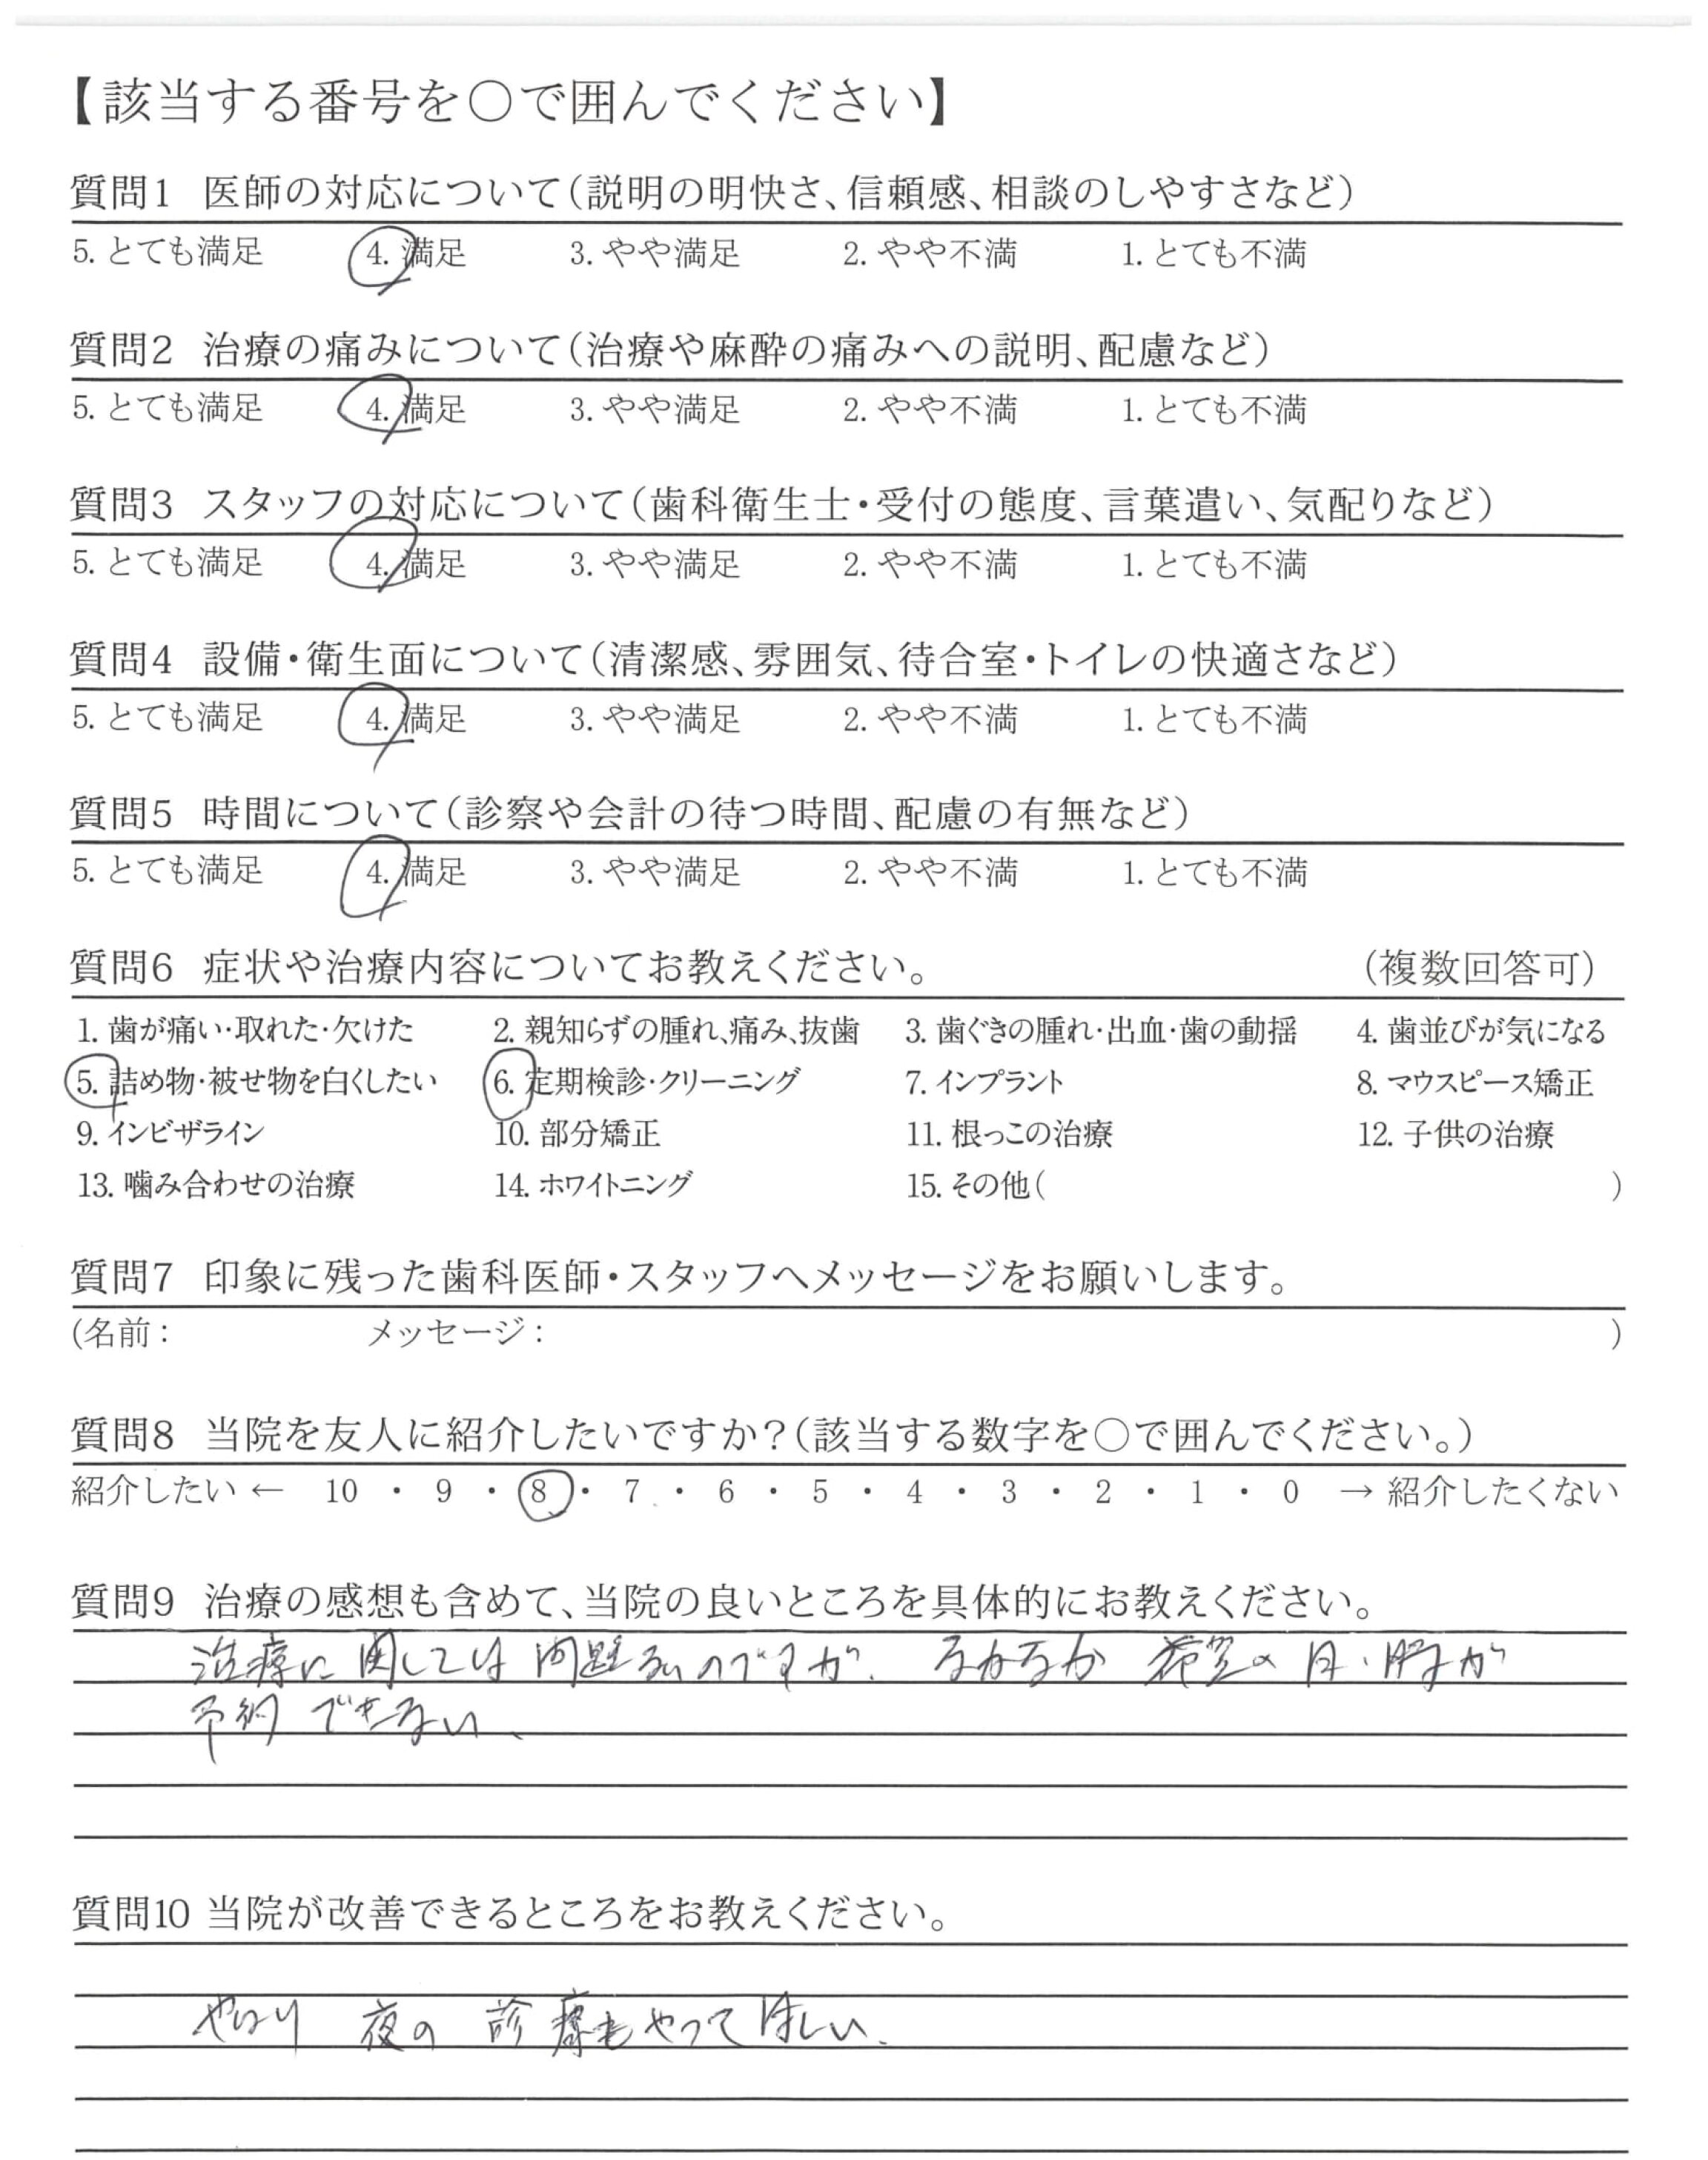 【該当する番号を〇で囲んでください】
質問1 医師の対応について(説明の明快さ、信頼感、相談のしやすさなど)
5. とても満足 4. 満足 3. やや満足 2. やや不満 1. とても不満
質問2 治療の痛みについて(治療や麻酔の痛みへの説明、配慮など)
5. とても満足 4. 満足 3. やや満足 2. やや不満 1. とても不満
質問3 スタッフの対応について(歯科衛生士・受付の態度、言葉遣い、気配りなど)
5. とても満足 4. 満足 3. やや満足 2. やや不満 1. とても不満
質問4 設備・衛生面について(清潔感、雰囲気、待合室・トイレの快適さなど)
5. とても満足 4. 満足 3. やや満足 2. やや不満 1. とても不満
質問5 時間について(診察や会計の待つ時間、配慮の有無など)
5. とても満足 4. 満足 3. やや満足 2. やや不満 1. とても不満
質問6 症状や治療内容についてお教えください。 (複数回答可)
1. 歯が痛い・取れた・欠けた 2. 親知らずの腫れ、痛み、抜歯 3. 歯ぐきの腫れ・出血・歯の動揺 4. 歯並びが気になる
5. 詰め物・被せ物を白くしたい 6. 定期検診・クリーニング 7. インプラント 8. マウスピース矯正
9. インビザライン 10. 部分矯正 11. 根っこの治療 12. 子供の治療
13. 噛み合わせの治療 14. ホワイトニング 15. その他( )
質問7 印象に残った歯科医師・スタッフへメッセージをお願いします。
(名前: メッセージ: )
質問8 当院を友人に紹介したいですか?(該当する数字を〇で囲んでください。)
紹介したい ← 10 ・ 9 ・ 8 ・ 7 ・ 6 ・ 5 ・ 4 ・ 3 ・ 2 ・ 1 ・ 0 → 紹介したくない
質問9 治療の感想も含めて、当院の良いところを具体的にお教えください。
治療に関しては問題ないのですが、なかなか希望の日・時が
予約できない、
質問10 当院が改善できるところをお教えください。
やはり 夜の 診療もやってほしい、